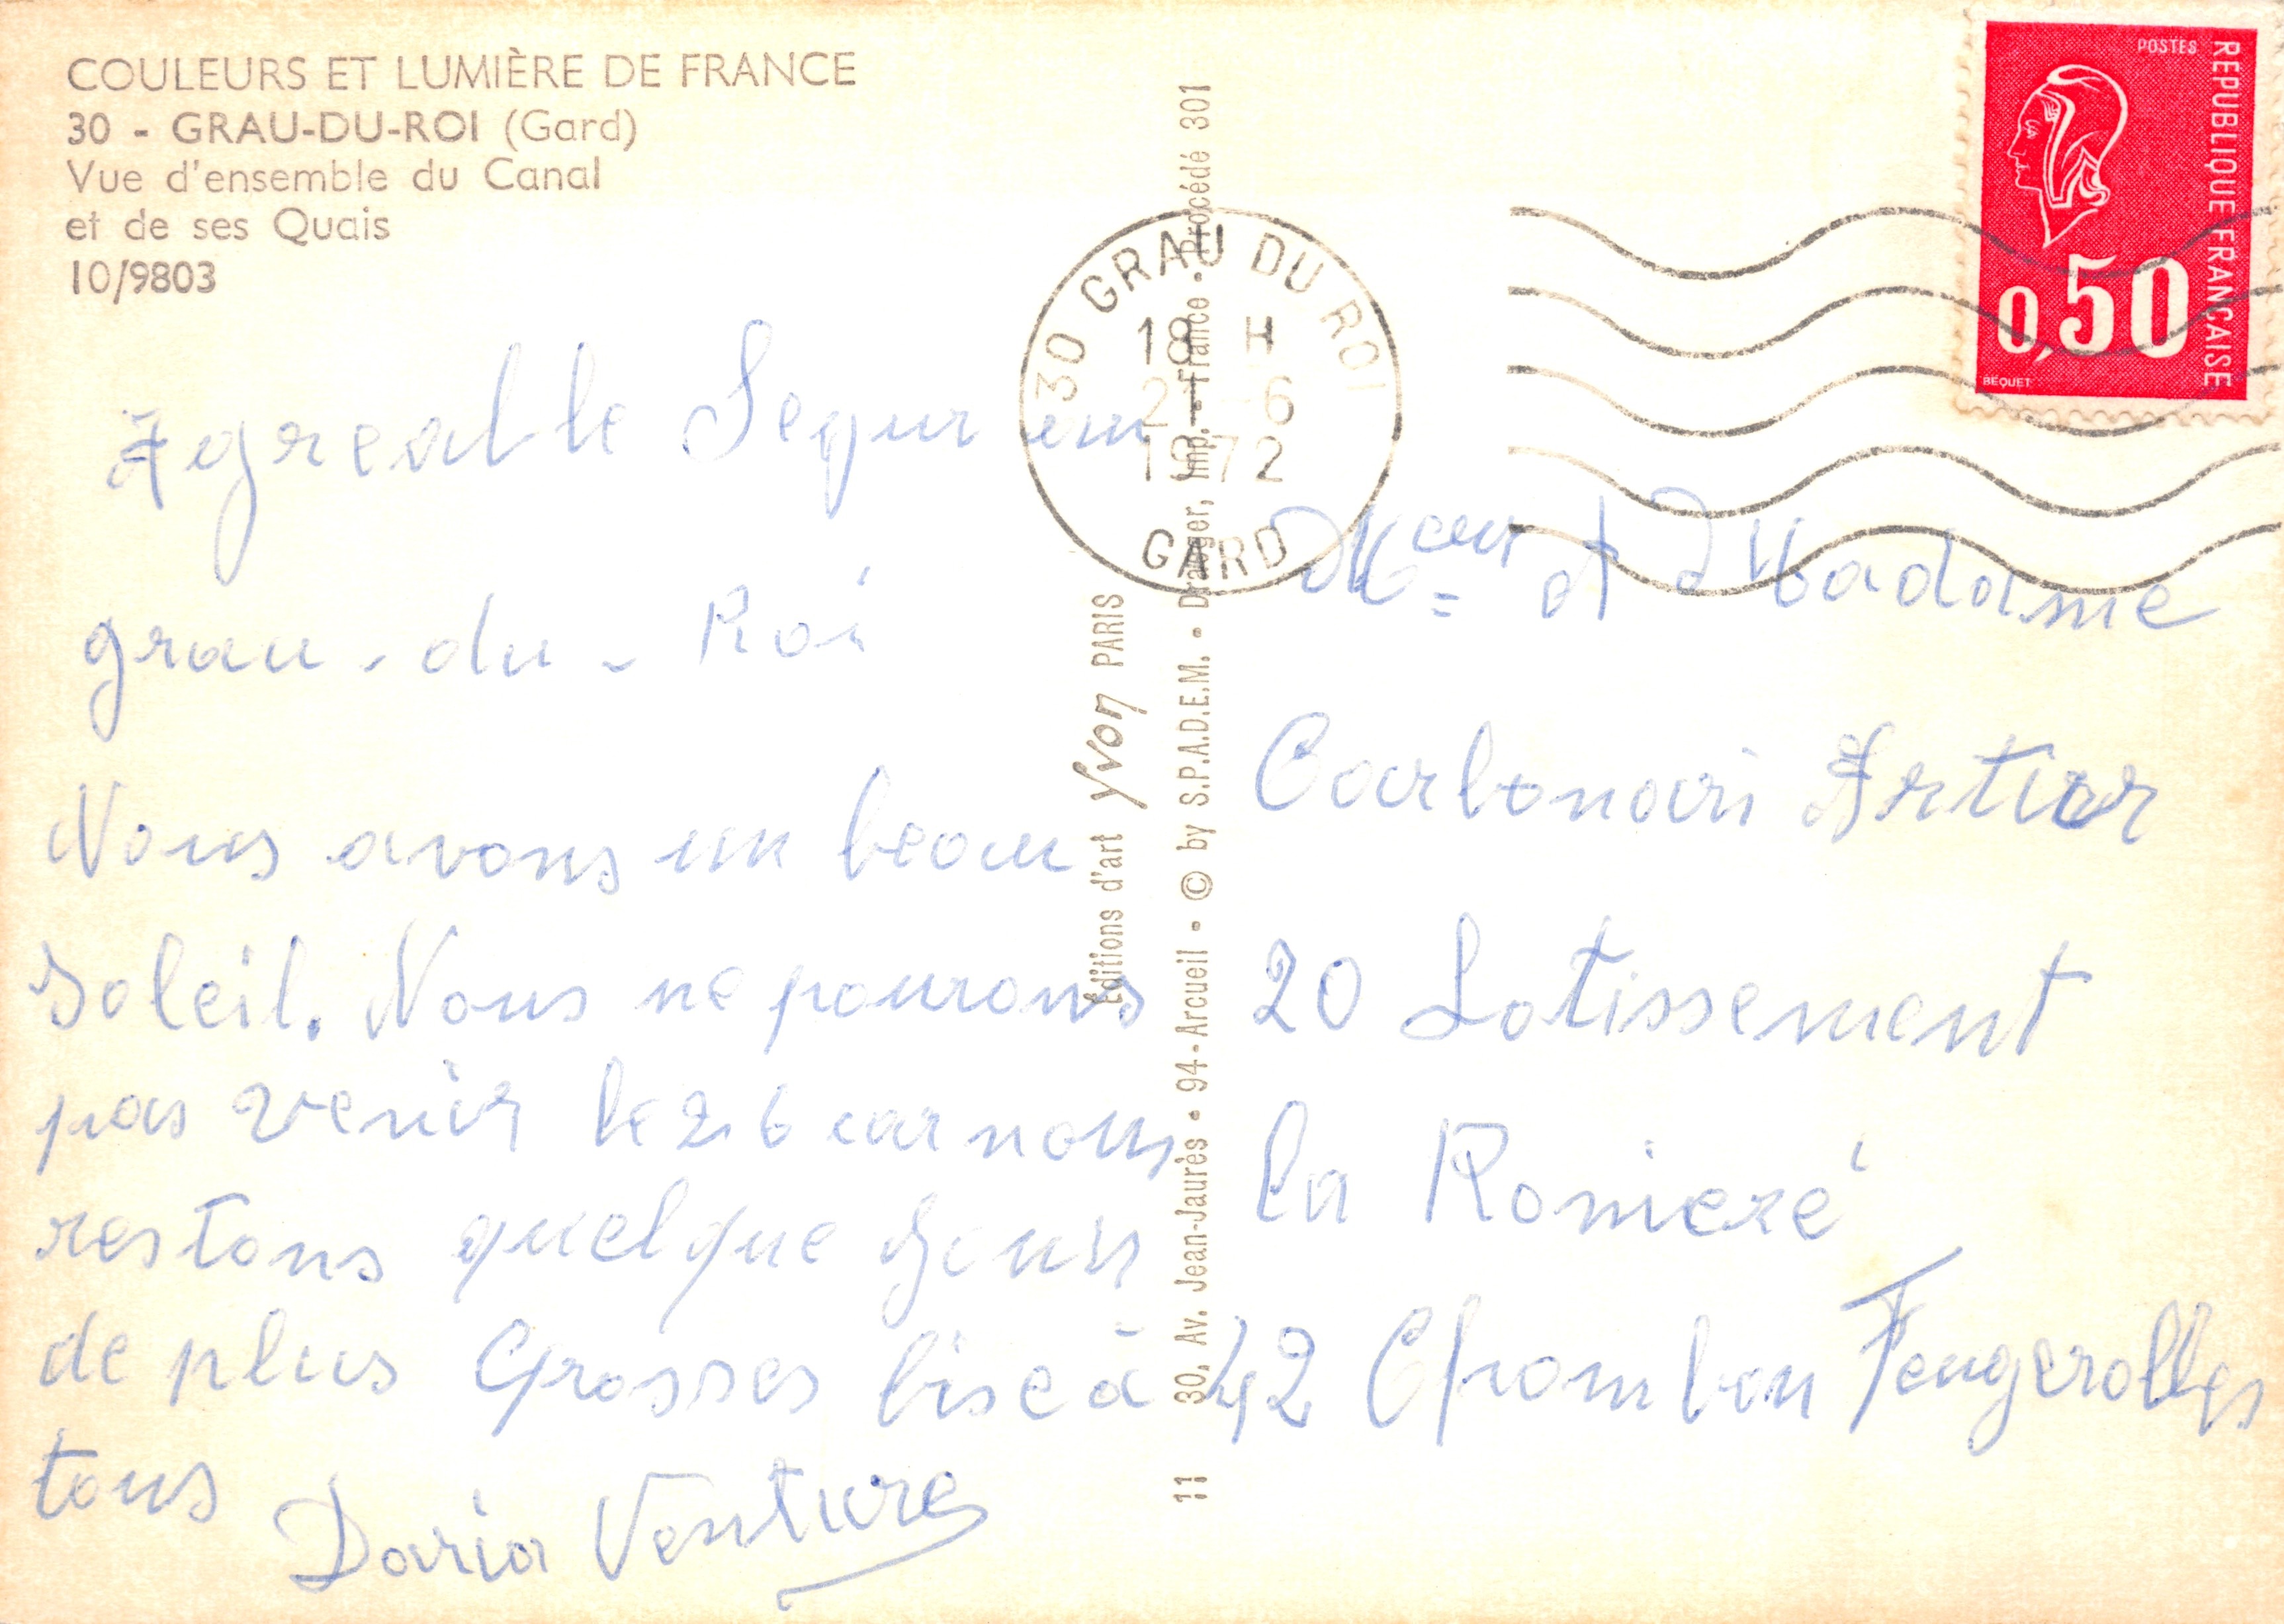 COULEURS ET LUMIÈRE DE FRANCE
30 - GRAU-DU-ROI (Gard)
Vue d'ensemble du Canal
et de ses Quais
10/9803
Agreable Segur au
grau-du-Roi
Nous avons un beau
Soleil. Nous ne pourons
pas venir le 26 car nous
restons quelque Jours
de plus Grosses bise à
tous
Daria Venture
Éditions d'art Yvon PARIS
11 30, Av. Jean-Jaurès - 94-Arcueil - © by S.P.A.D.E.M. - Draeger, Imp. - France - Procédé 301
30 GRAU DU ROI
18 H
-6
1972
GARD
POSTES
REPUBLIQUE FRANÇAISE
0,50
BEQUET
et Madame
Carbonari Artur
20 Lotissement
la Romieré
42 Chambon Feugerolles